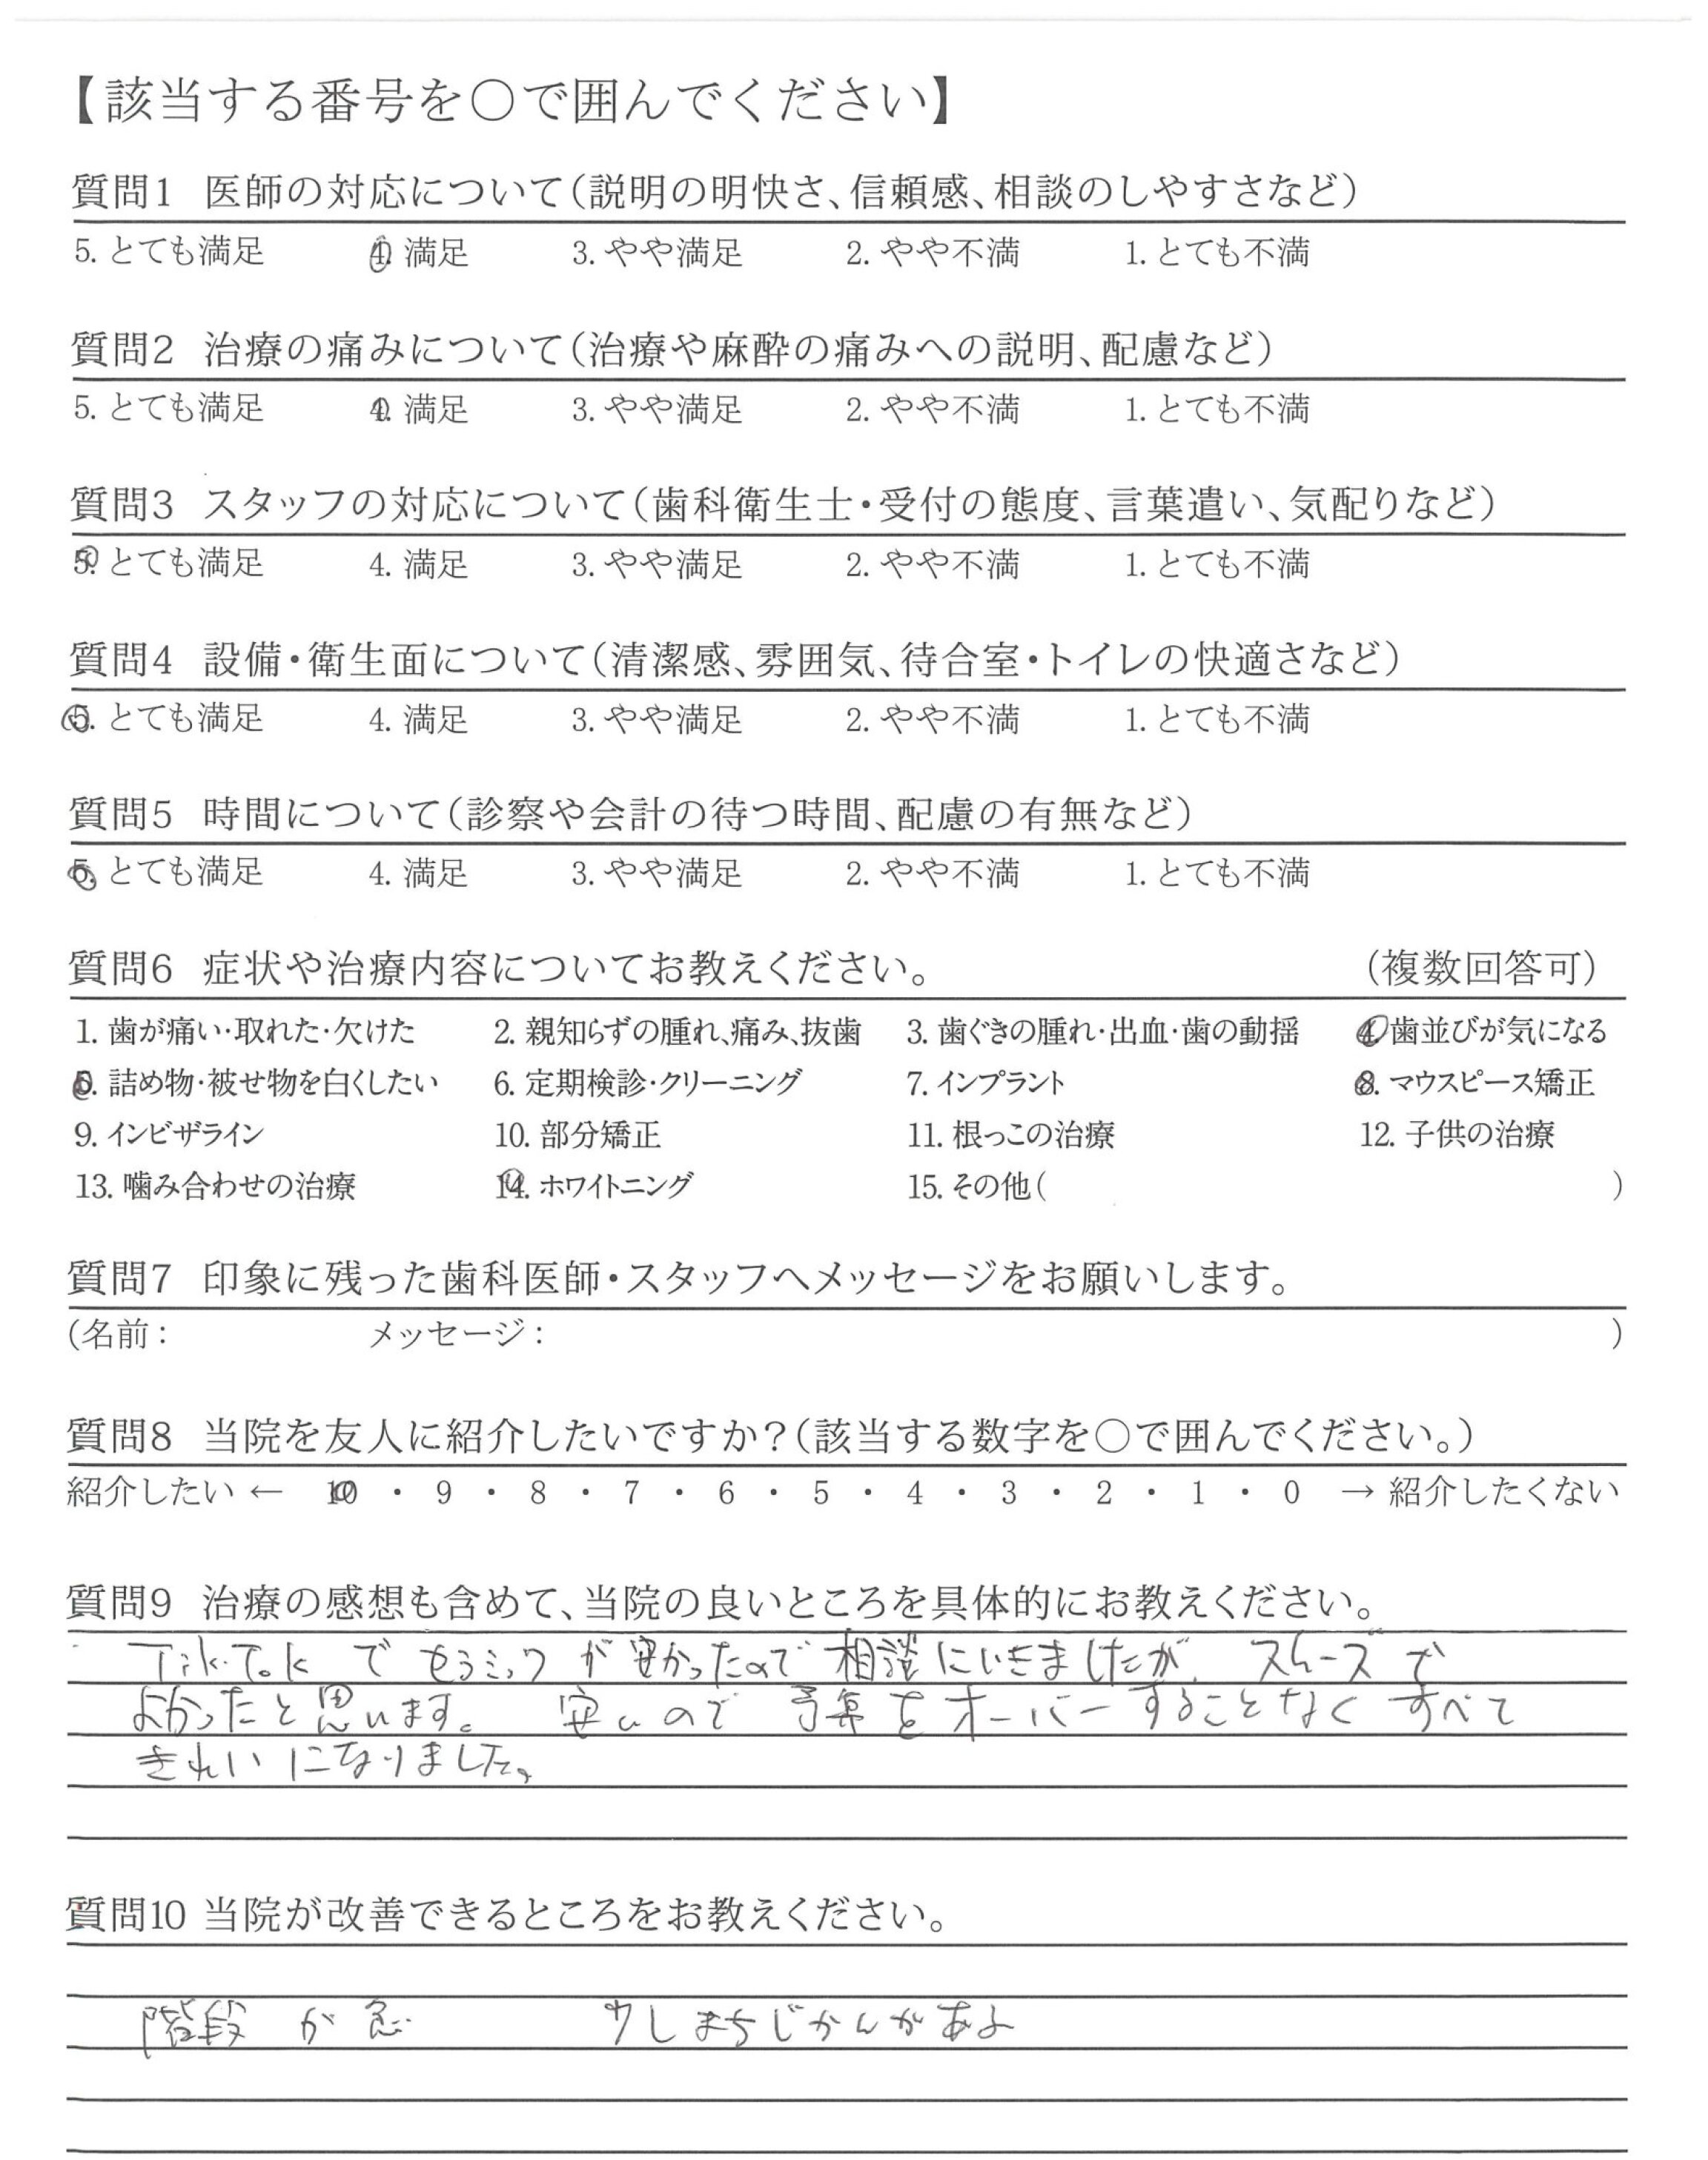 【該当する番号を○で囲んでください】
質問1 医師の対応について(説明の明快さ、信頼感、相談のしやすさなど)
5. とても満足 4. 満足 3. やや満足 2. やや不満 1. とても不満
質問2 治療の痛みについて(治療や麻酔の痛みへの説明、配慮など)
5. とても満足 4. 満足 3. やや満足 2. やや不満 1. とても不満
質問3 スタッフの対応について(歯科衛生士・受付の態度、言葉遣い、気配りなど)
5. とても満足 4. 満足 3. やや満足 2. やや不満 1. とても不満
質問4 設備・衛生面について(清潔感、雰囲気、待合室・トイレの快適さなど)
5. とても満足 4. 満足 3. やや満足 2. やや不満 1. とても不満
質問5 時間について(診察や会計の待つ時間、配慮の有無など)
5. とても満足 4. 満足 3. やや満足 2. やや不満 1. とても不満
質問6 症状や治療内容についてお教えください。 (複数回答可)
1. 歯が痛い・取れた・欠けた 2. 親知らずの腫れ、痛み、抜歯 3. 歯ぐきの腫れ・出血・歯の動揺 4. 歯並びが気になる
5. 詰め物・被せ物を白くしたい 6. 定期検診・クリーニング 7. インプラント 8. マウスピース矯正
9. インビザライン 10. 部分矯正 11. 根っこの治療 12. 子供の治療
13. 噛み合わせの治療 14. ホワイトニング 15. その他( )
質問7 印象に残った歯科医師・スタッフへメッセージをお願いします。
(名前: メッセージ: )
質問8 当院を友人に紹介したいですか?(該当する数字を○で囲んでください。)
紹介したい ← 10 ・ 9 ・ 8 ・ 7 ・ 6 ・ 5 ・ 4 ・ 3 ・ 2 ・ 1 ・ 0 → 紹介したくない
質問9 治療の感想も含めて、当院の良いところを具体的にお教えください。
TikTok で セラミック が 安かったので 相談にいきましたが、スムーズで
よかったと思います。 安いので 予算をオーバーすることなく すべて
きれいになりました。
質問10 当院が改善できるところをお教えください。
階段 が 急 少しまちじかんがあよ